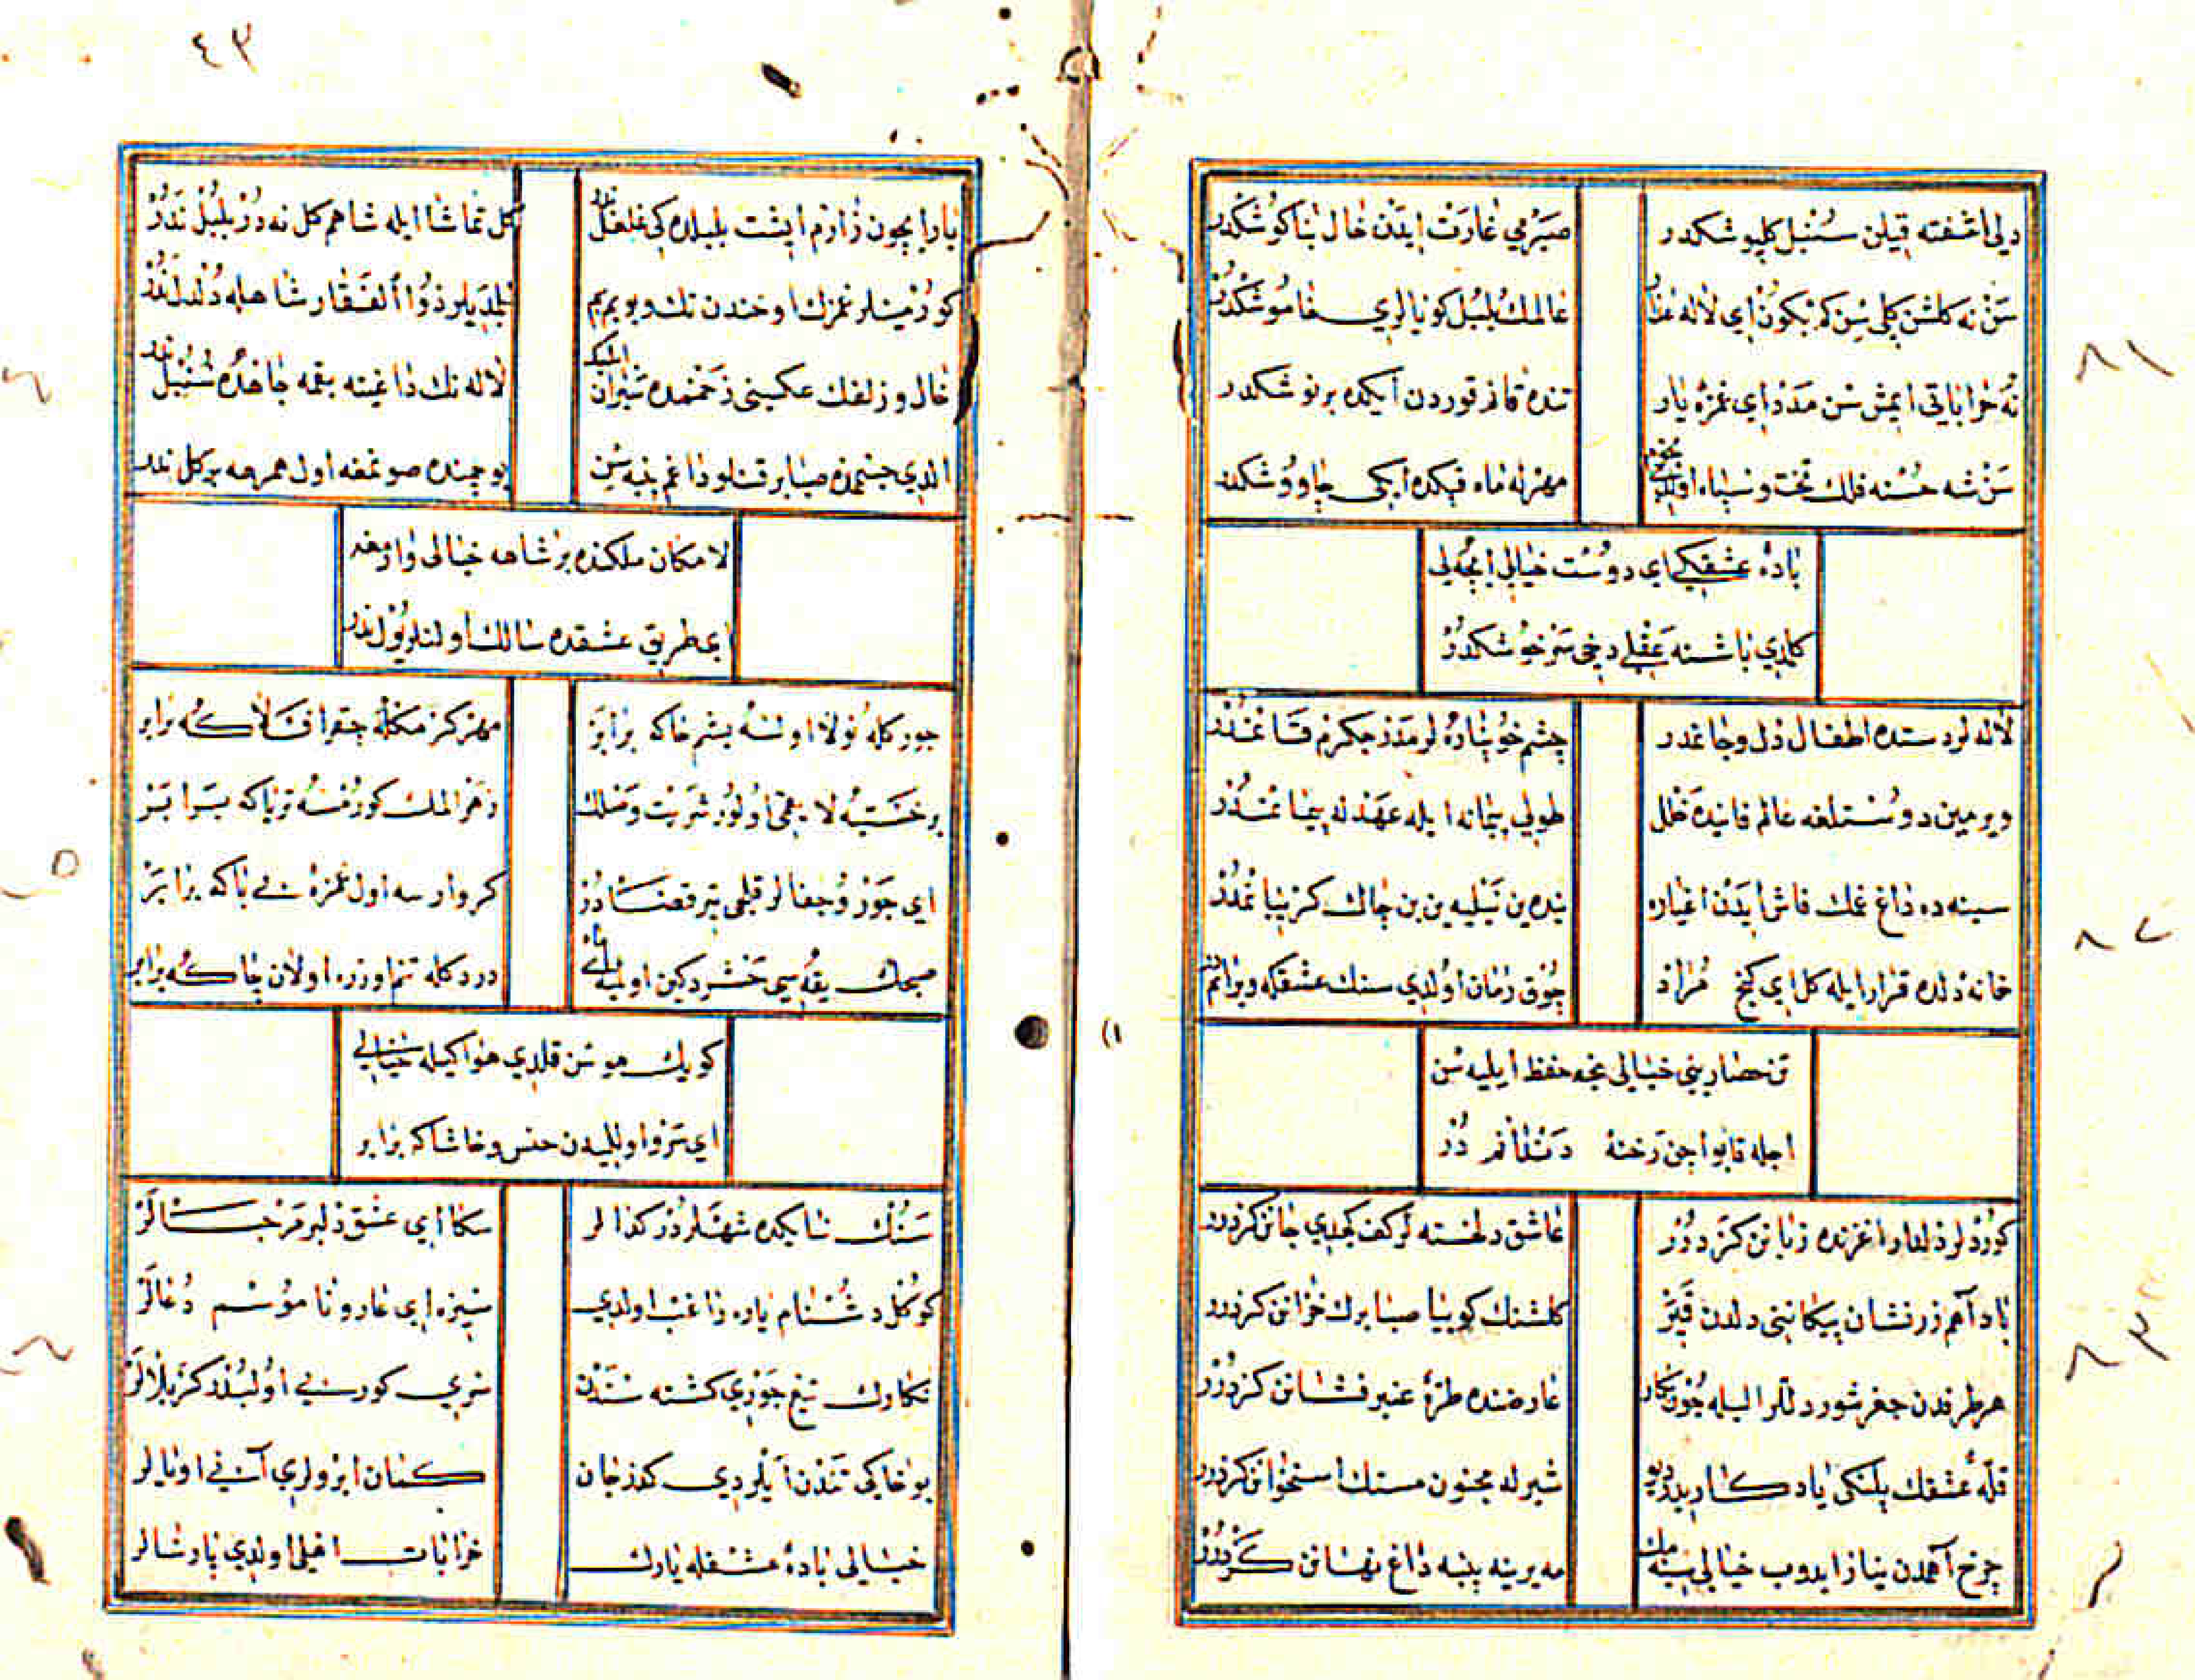 دلی آشفته قیلن سنبل کیسوشکدر
صبرمی غارت ایدن خال بناکوشکدر
سن نه کلشن کلی سن کم بکون ای لاله عذار
عالمك بلبل کویالری خاموشکدر
نه خراباتی ایمش سن مدد ای غمزه یار
تنده قانلر قوردن ایکده بر نوشکدر
سن شه حسنه فلك تخت و سپاه اولدی نجوم
مهرله ماه قپکده ایکی چاووشکدر
باده عشقکی ای دوست خیالی ایچه لی
کلدی باشنه عقلی دخی سرخوشکدر
لاله لر دستده اطفال دل و جانمدر
چشم خونباره لر مدر جکرم قانمدر
ویرمین دوستلغه عالم فانیده خلل
طولی پیمانه ایله عهدله پیمانمدر
سینه ده داغ غمك فاش ایدن اغیاره
نیده ین نیلیه ین بن چاك کریبانمدر
خانه دلده قرار ایله کل ای کنج مراد
چوق زمان اولدی سنك عشقکله ویرانمدر
تن حصارینی خیالی نجه حفظ ایلیه سن
اجله قاپو اجن رخنه دندانمدر
کوردلر دلدار اغزنده زبانن کزدرر
عاشق دلخسته لر کف کچدی جانن کزدرر
باد آهم زرنشان پیکاننی دلدن قپر
کلشنك کوییا صبا برك خزانن کزدرر
هر طرفدن جمغ شور دللر البله چون نکار
عارضنده طره عنبر فشانن کزدرر
قله عشقك پلنکی یادکاریدر دیو
شیرلر مجنون مستك استخوانن کزدرر
چرخ آهمدن نیاز ایدوب خیالی سینه مك
مه یرینه پنبه داغ نهانن کزدرر
٤٣
یار ایچون زارم ایشت بلبلده کی غلغل ندر
کل تماشا ایله شاهم کل نه در بلبل ندر
کورمینلر غمزك اوخندن تلك دو بویمم
بلدیلر ذو الفقار شاهله دلدل ندر
خال و زلفك عکسینی زخممده سیران ایلیکه
لاله نك داغینه بقمه جانده سنبل ندر
الدی چشممده صبا بر قنلو داغم پنبه سن
بو چمنده صونمغه اول همرهه بر کل ندر
لا مکان ملکنده بر شاهه خیالی وارمغه
ای طریق عشقده سالك اولنلر یول ندر
جورکله نولا اولسه یشم خاکه برابر
مهرکز مکلله چقر افلاکه برابر
بر خسته لایقمی اولور شربت وصلك
زهر المك کورمسه تریاکه برابر
ای جور و جفالر قلمی تیر قضادر
کر وارسه اول غمزه بی باکه برابر
صبحك یقه سی حشر دکین اولمیه رای
دردکله تنم اوزره اولان چاکه برابر
کویك هوسن قلدی هواکیله خیالی
ای سرو اولیلیدن خس و خاشاکه برابر
سنك نایکده شهلردر کدالر
سکا ای عشق دلبر مرحبالر
کوکل دشنام یاره راغب اولدی
سیزه ای عار و ناموسم دعالر
نکارك تیغ جوری کشته سندن
سری کورسی اولبدر کربلالر
بو خاکی تندن ایلر دی کذر جان
کمان ابرولری آنی اویالر
خیالی باده عشقله یارك
خرابات اهلی اولدی پارسالر
٨١
٨٢
٨٣